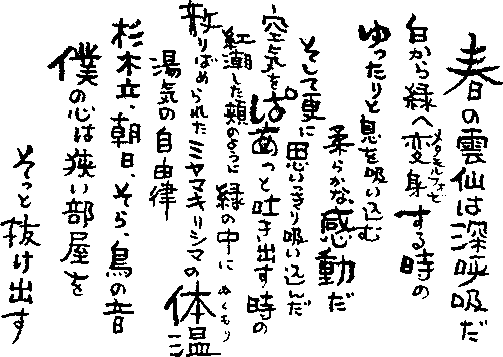 春の雲仙は深呼吸だ
白から緑へ変身する時の
メタモルフォーゼ
ゆったりと息を吸い込む
柔らかな感動だ
そして更に思いっきり吸い込んだ
空気をぱあっと吐き出す時の
紅潮した頬のように緑の中に
散りばめられたミヤマキリシマの体温
ぬくもり
湯気の自由律
杉木立、朝日、そら、鳥の音
僕の心は狭い部屋を
そっと抜け出す